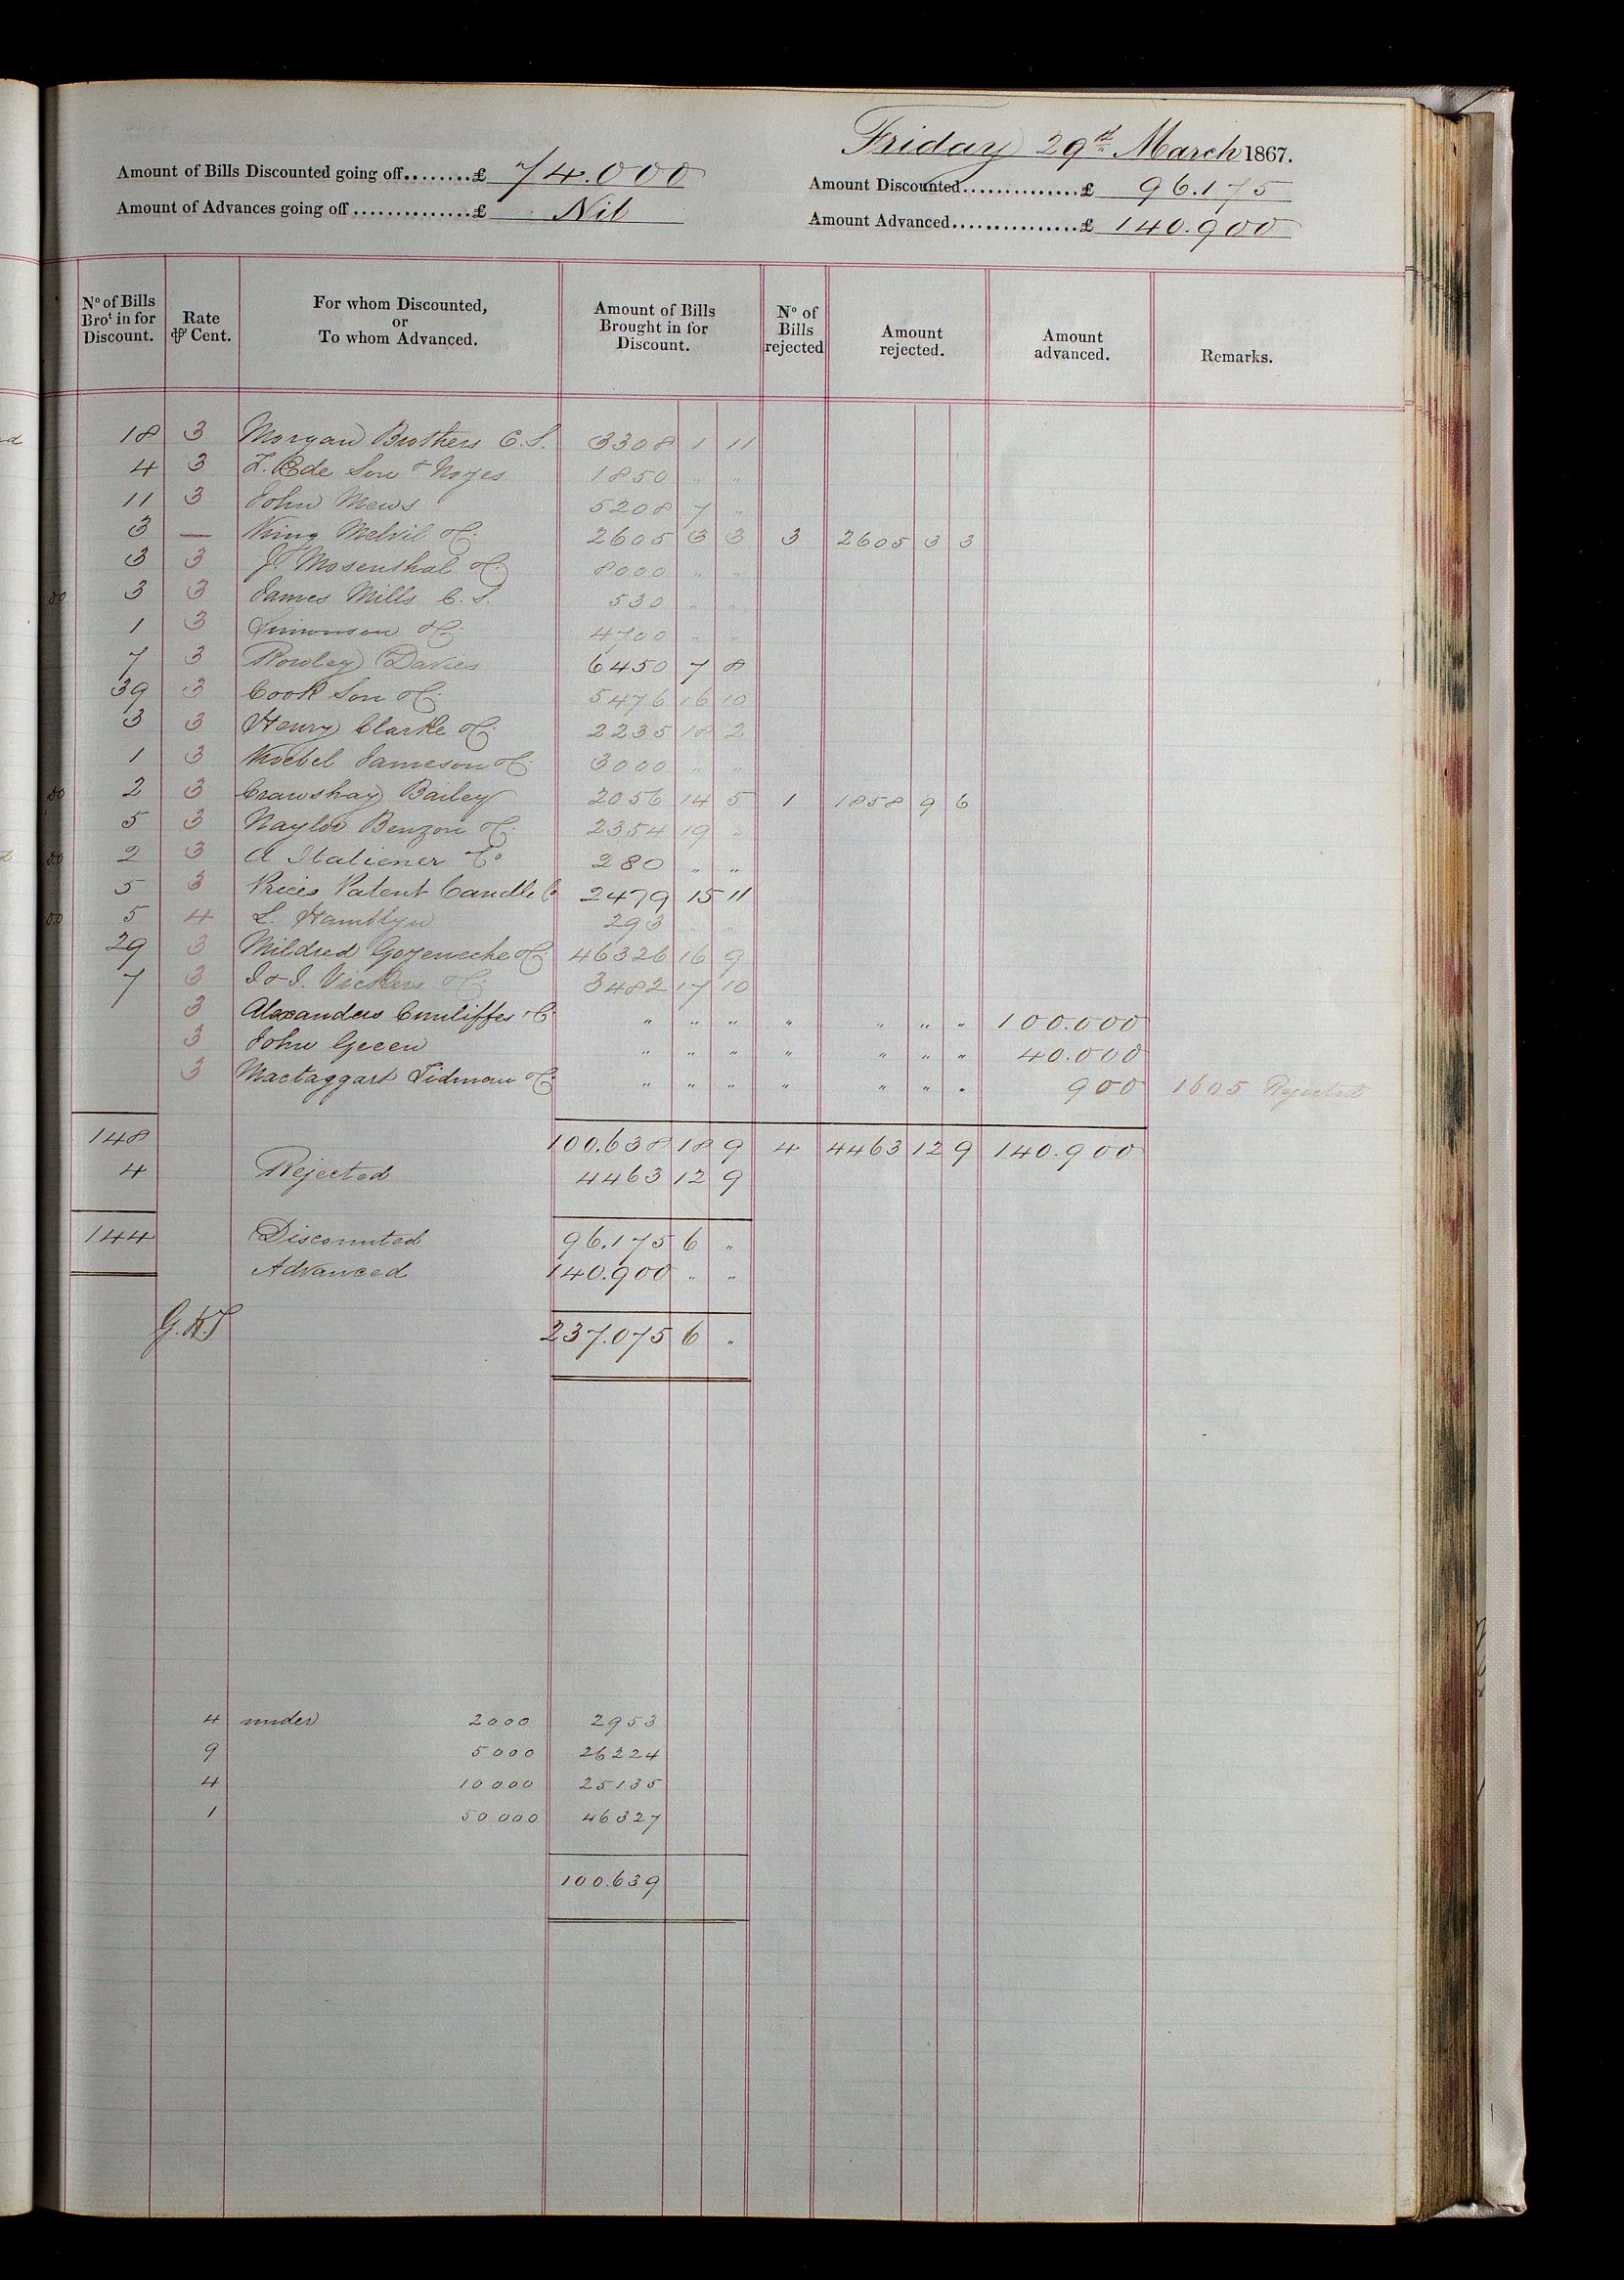 Friday 29th March 1867.
Amount of Bills Discounted going off........£ 74.000
Amount Discounted..............£ 96.175
Amount of Advances going off ..............£ Nil
Amount Advanced...............£ 140.900
No of Bills Brot in for Discount. Rate ⅌ Cent. For whom Discounted, or To whom Advanced. Amount of Bills Brought in for Discount. No of Bills rejected Amount rejected. Amount advanced. Remarks.
18 3 Morgan Brothers C.S. 3308 1 11
4 3 F. Ede Son & Noyes 1850 " "
11 3 John Mews 5208 7 "
3 — King Melvil & Co. 2605 3 3 3 2605 3 3
3 3 Mosenthal & Co. 8000 " "
3 3 James Mills C.S. 530 " "
1 3 Simonson & Co. 4700 " "
7 3 Rowley Davies 6450 7 8
39 3 Cook Son & Co. 5476 16 10
3 3 Henry Clarke & Co. 2235 18 2
1 3 Knebel Jameson & Co. 3000 " "
2 3 Crawshay Bailey 2056 14 5 1 1858 9 6
5 3 Naylor Benzon & Co. 2354 19 "
2 3 A Stationer Co 280 " "
5 3 Prices Patent Candle Co 2479 15 11
5 4 L. Hamblyn 293 " "
29 3 Mildred Goyeneche & Co. 46326 16 9
7 3 J & J. Vickers & Co. 3482 17 10
3 Alexanders Cunliffes & Co " " " " " " " 100.000
3 John Green " " " " " " " 40.000
3 Mactaggart Tidman & Co. " " " " " " " 900 1605 Rejected
148 100.638 18 9 4 4463 12 9 140.900
4 Rejected 4463 12 9
144 Discounted 96.175 6 "
Advanced 140.900 " "
237.075 6 "
4 under 2000 2953
9 5000 26224
4 10000 25135
1 50000 46327
100.639